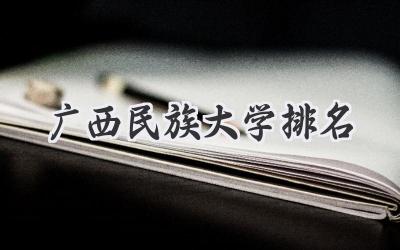 广西民族大学排名